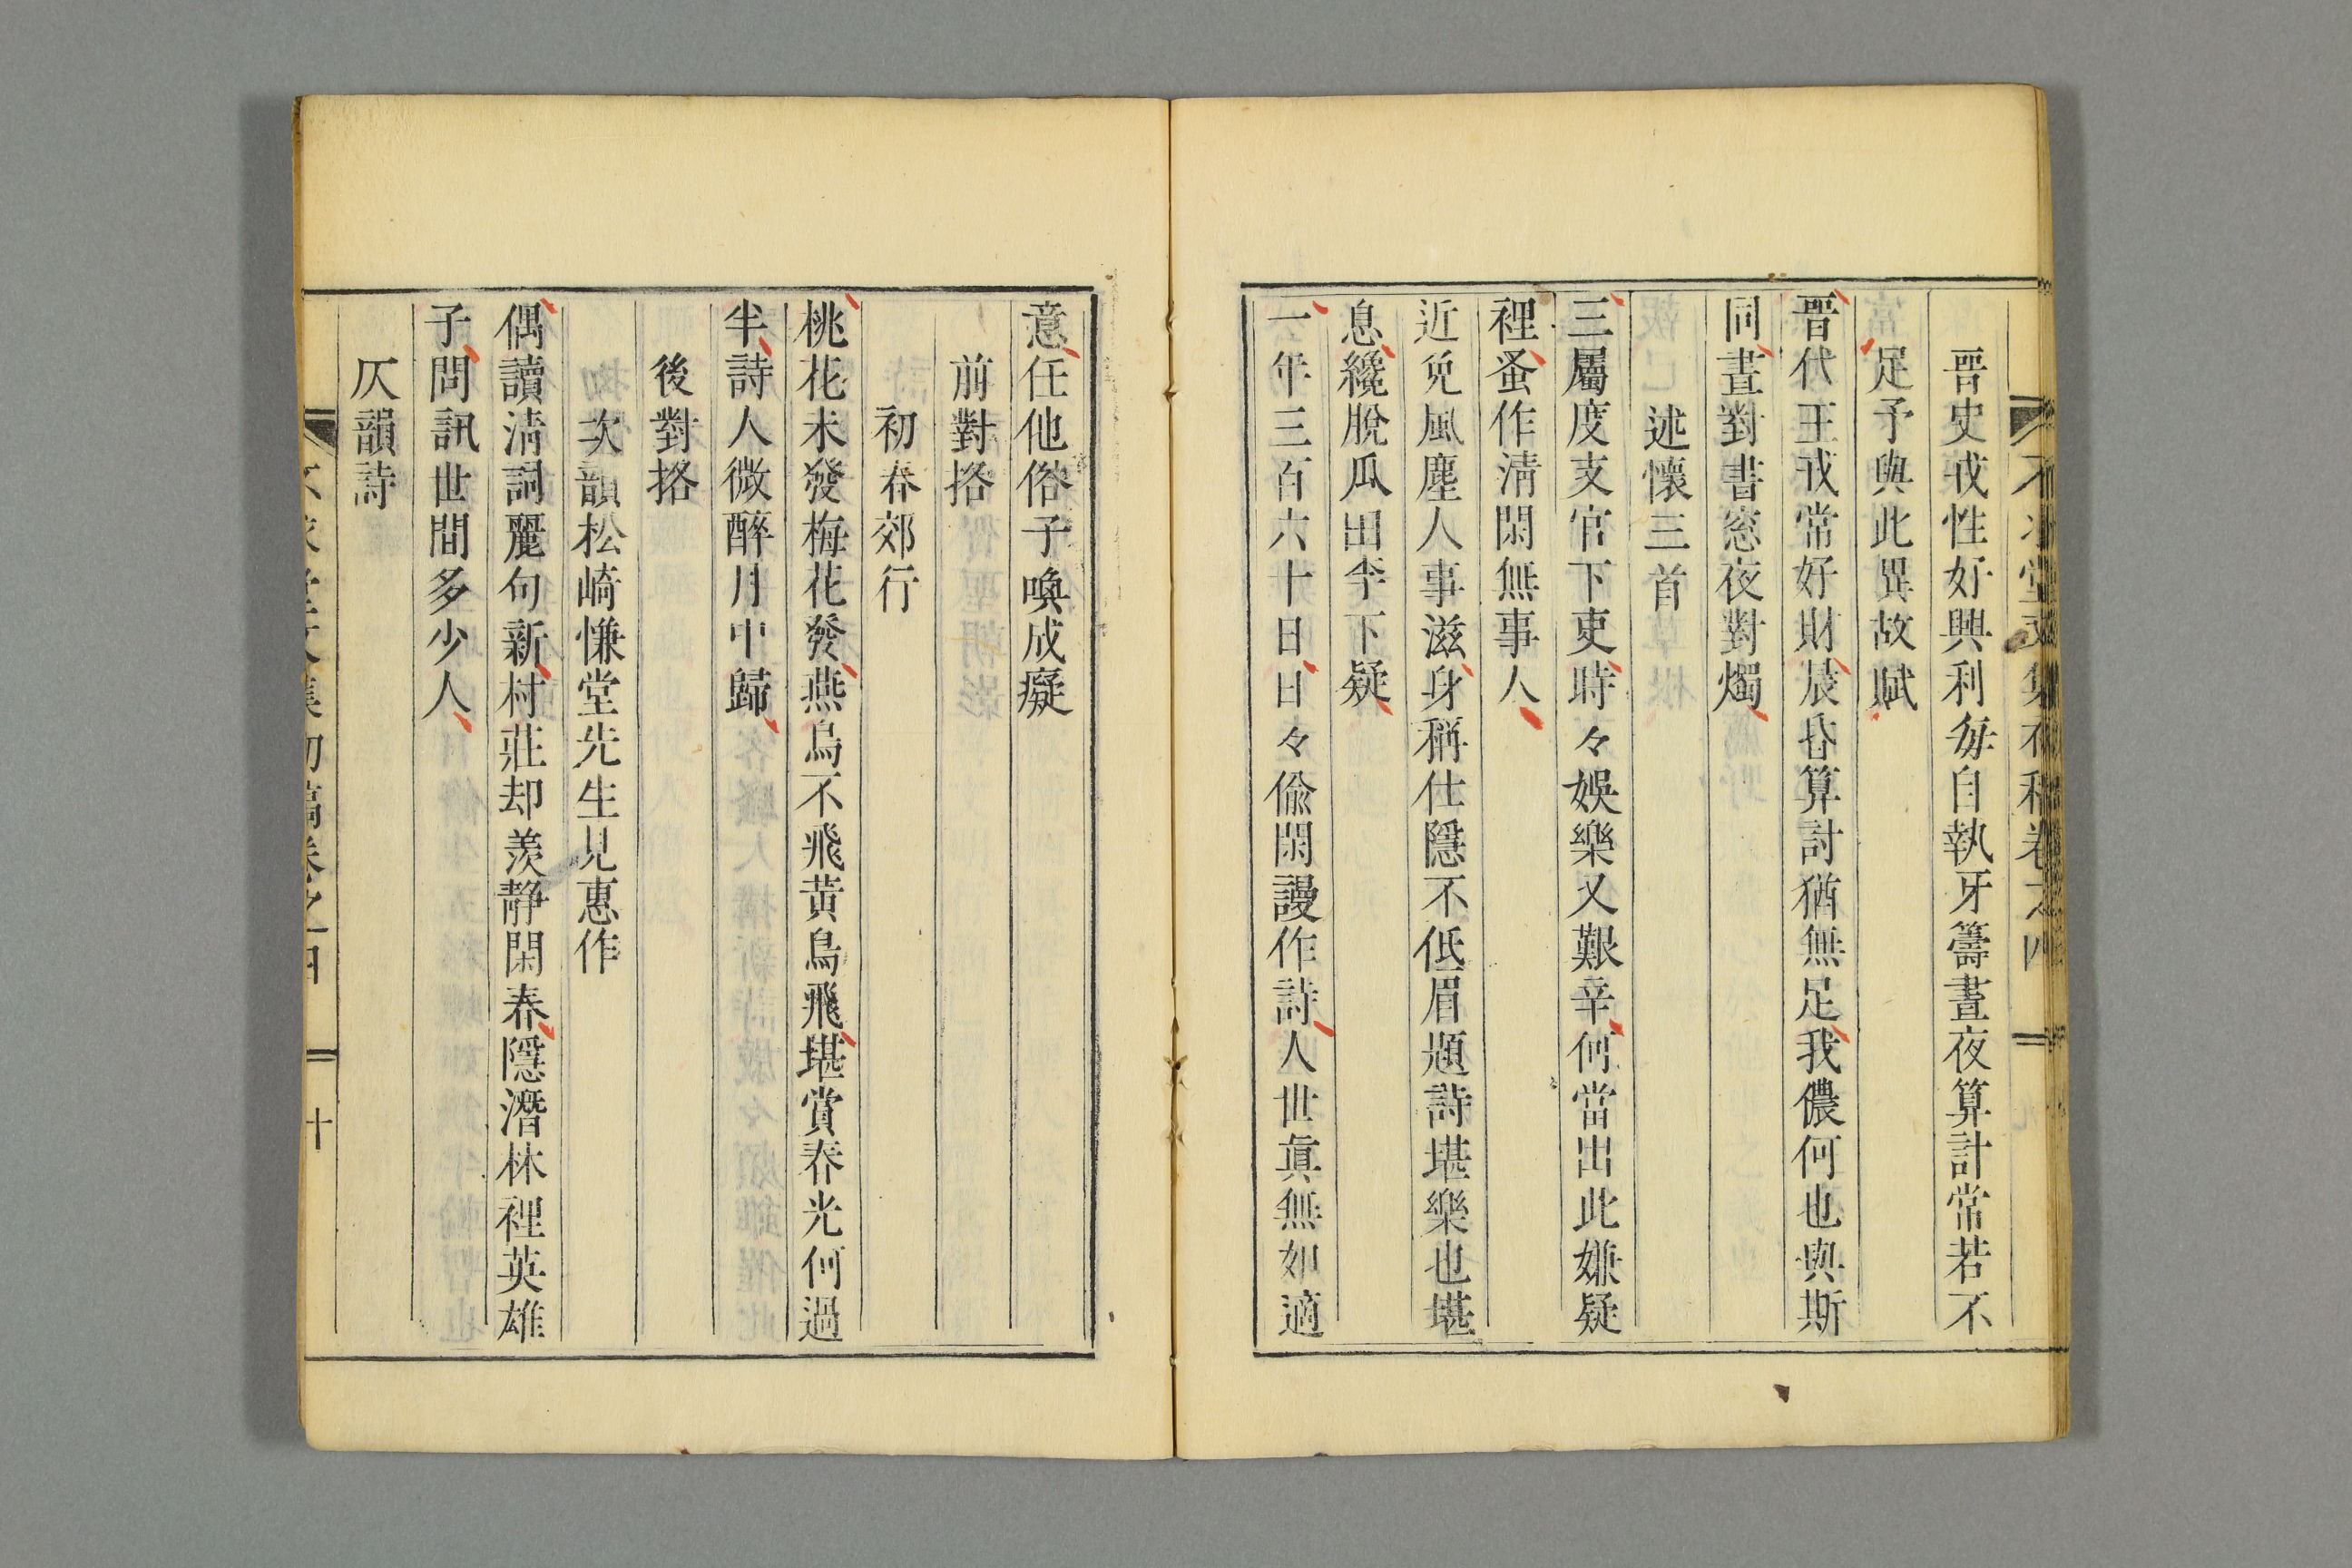 晋史戎性好興利毎自執牙籌晝夜算計常若不
足予與此異故賦
晋代王戎常好財晨昏算討猶無足我儂何也與斯
同晝對書窓夜對燭
述懷三首
三屬度支官下吏時々娯樂又艱辛何當出此嫌疑
裡蚤作淸閑無事人
近免風塵人事滋身稱仕隱不低眉題詩堪樂也堪
息纔脫瓜田李下疑
一年三百六十日日々偸閑謾作詩人世眞無如適
意任他俗子喚成癡
前對格
初春郊行
桃花未發梅花發燕烏不飛黃鳥飛堪賞春光何過
半詩人微醉月中歸
後對格
次韻松崎慊堂先生見惠作
偶讀淸詞麗句新村莊却羨靜閑春隱濳林裡英雄
子問訊世間多少人
仄韻詩
十